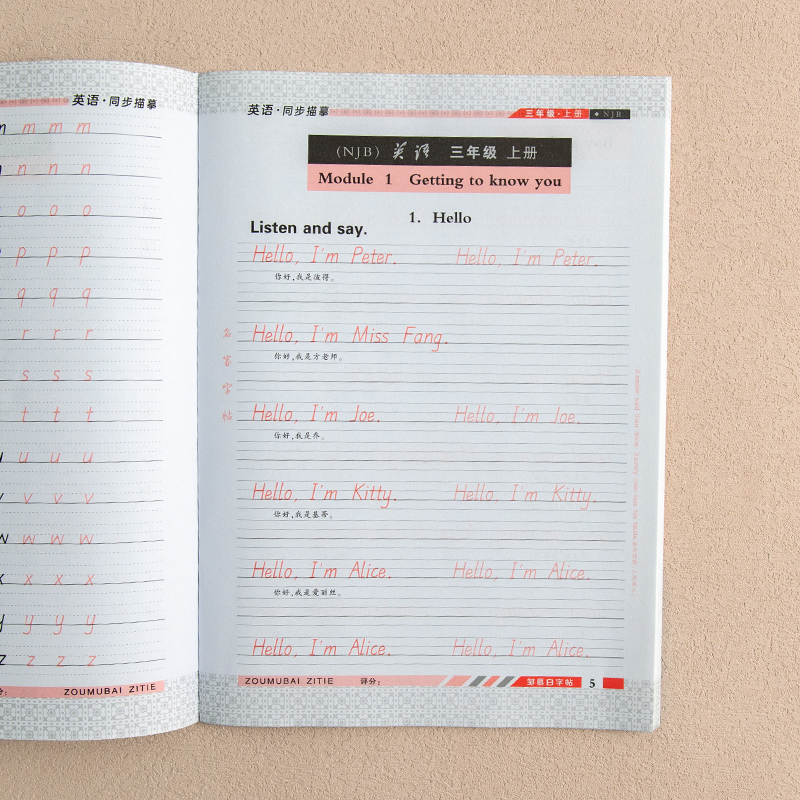 英语·同步描摹
n m m m
n n n
o o o
p p p
q q q
r r r
s s s
t t t
u u u
v v v
w w w w
x x x x
y y y y
z z z z
分:
ZOUMUBAI ZITIE
英语·同步描摹
三年级·上册 ◆NJB
(NJB) 英语 三年级 上册
Module 1 Getting to know you
1. Hello
Listen and say.
Hello, I'm Peter. Hello, I'm Peter.
你好,我是彼得。
Hello, I'm Miss Fang.
你好,我是方老师。
Hello, I'm Joe. Hello, I'm Joe.
你好,我是乔。
Hello, I'm Kitty. Hello, I'm Kitty.
你好,我是基蒂。
Hello, I'm Alice. Hello, I'm Alice.
你好,我是爱丽丝。
Hello, I'm Alice. Hello, I'm Alice.
名家字帖
ZOUMUBAI ZITIE 评分:
邹慕白字帖 5